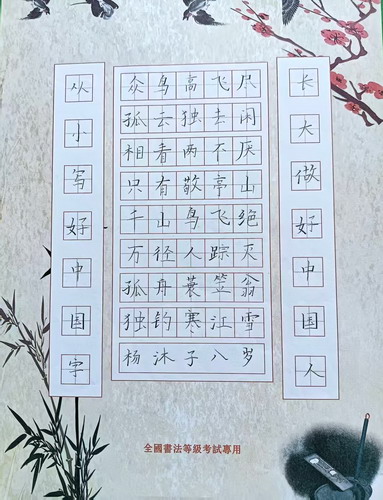 从小写好中国字
众鸟高飞尽
孤云独去闲
相看两不厌
只有敬亭山
千山鸟飞绝
万径人踪灭
孤舟蓑笠翁
独钓寒江雪
杨沐子八岁
长大做好中国人
全國書法等級考試專用